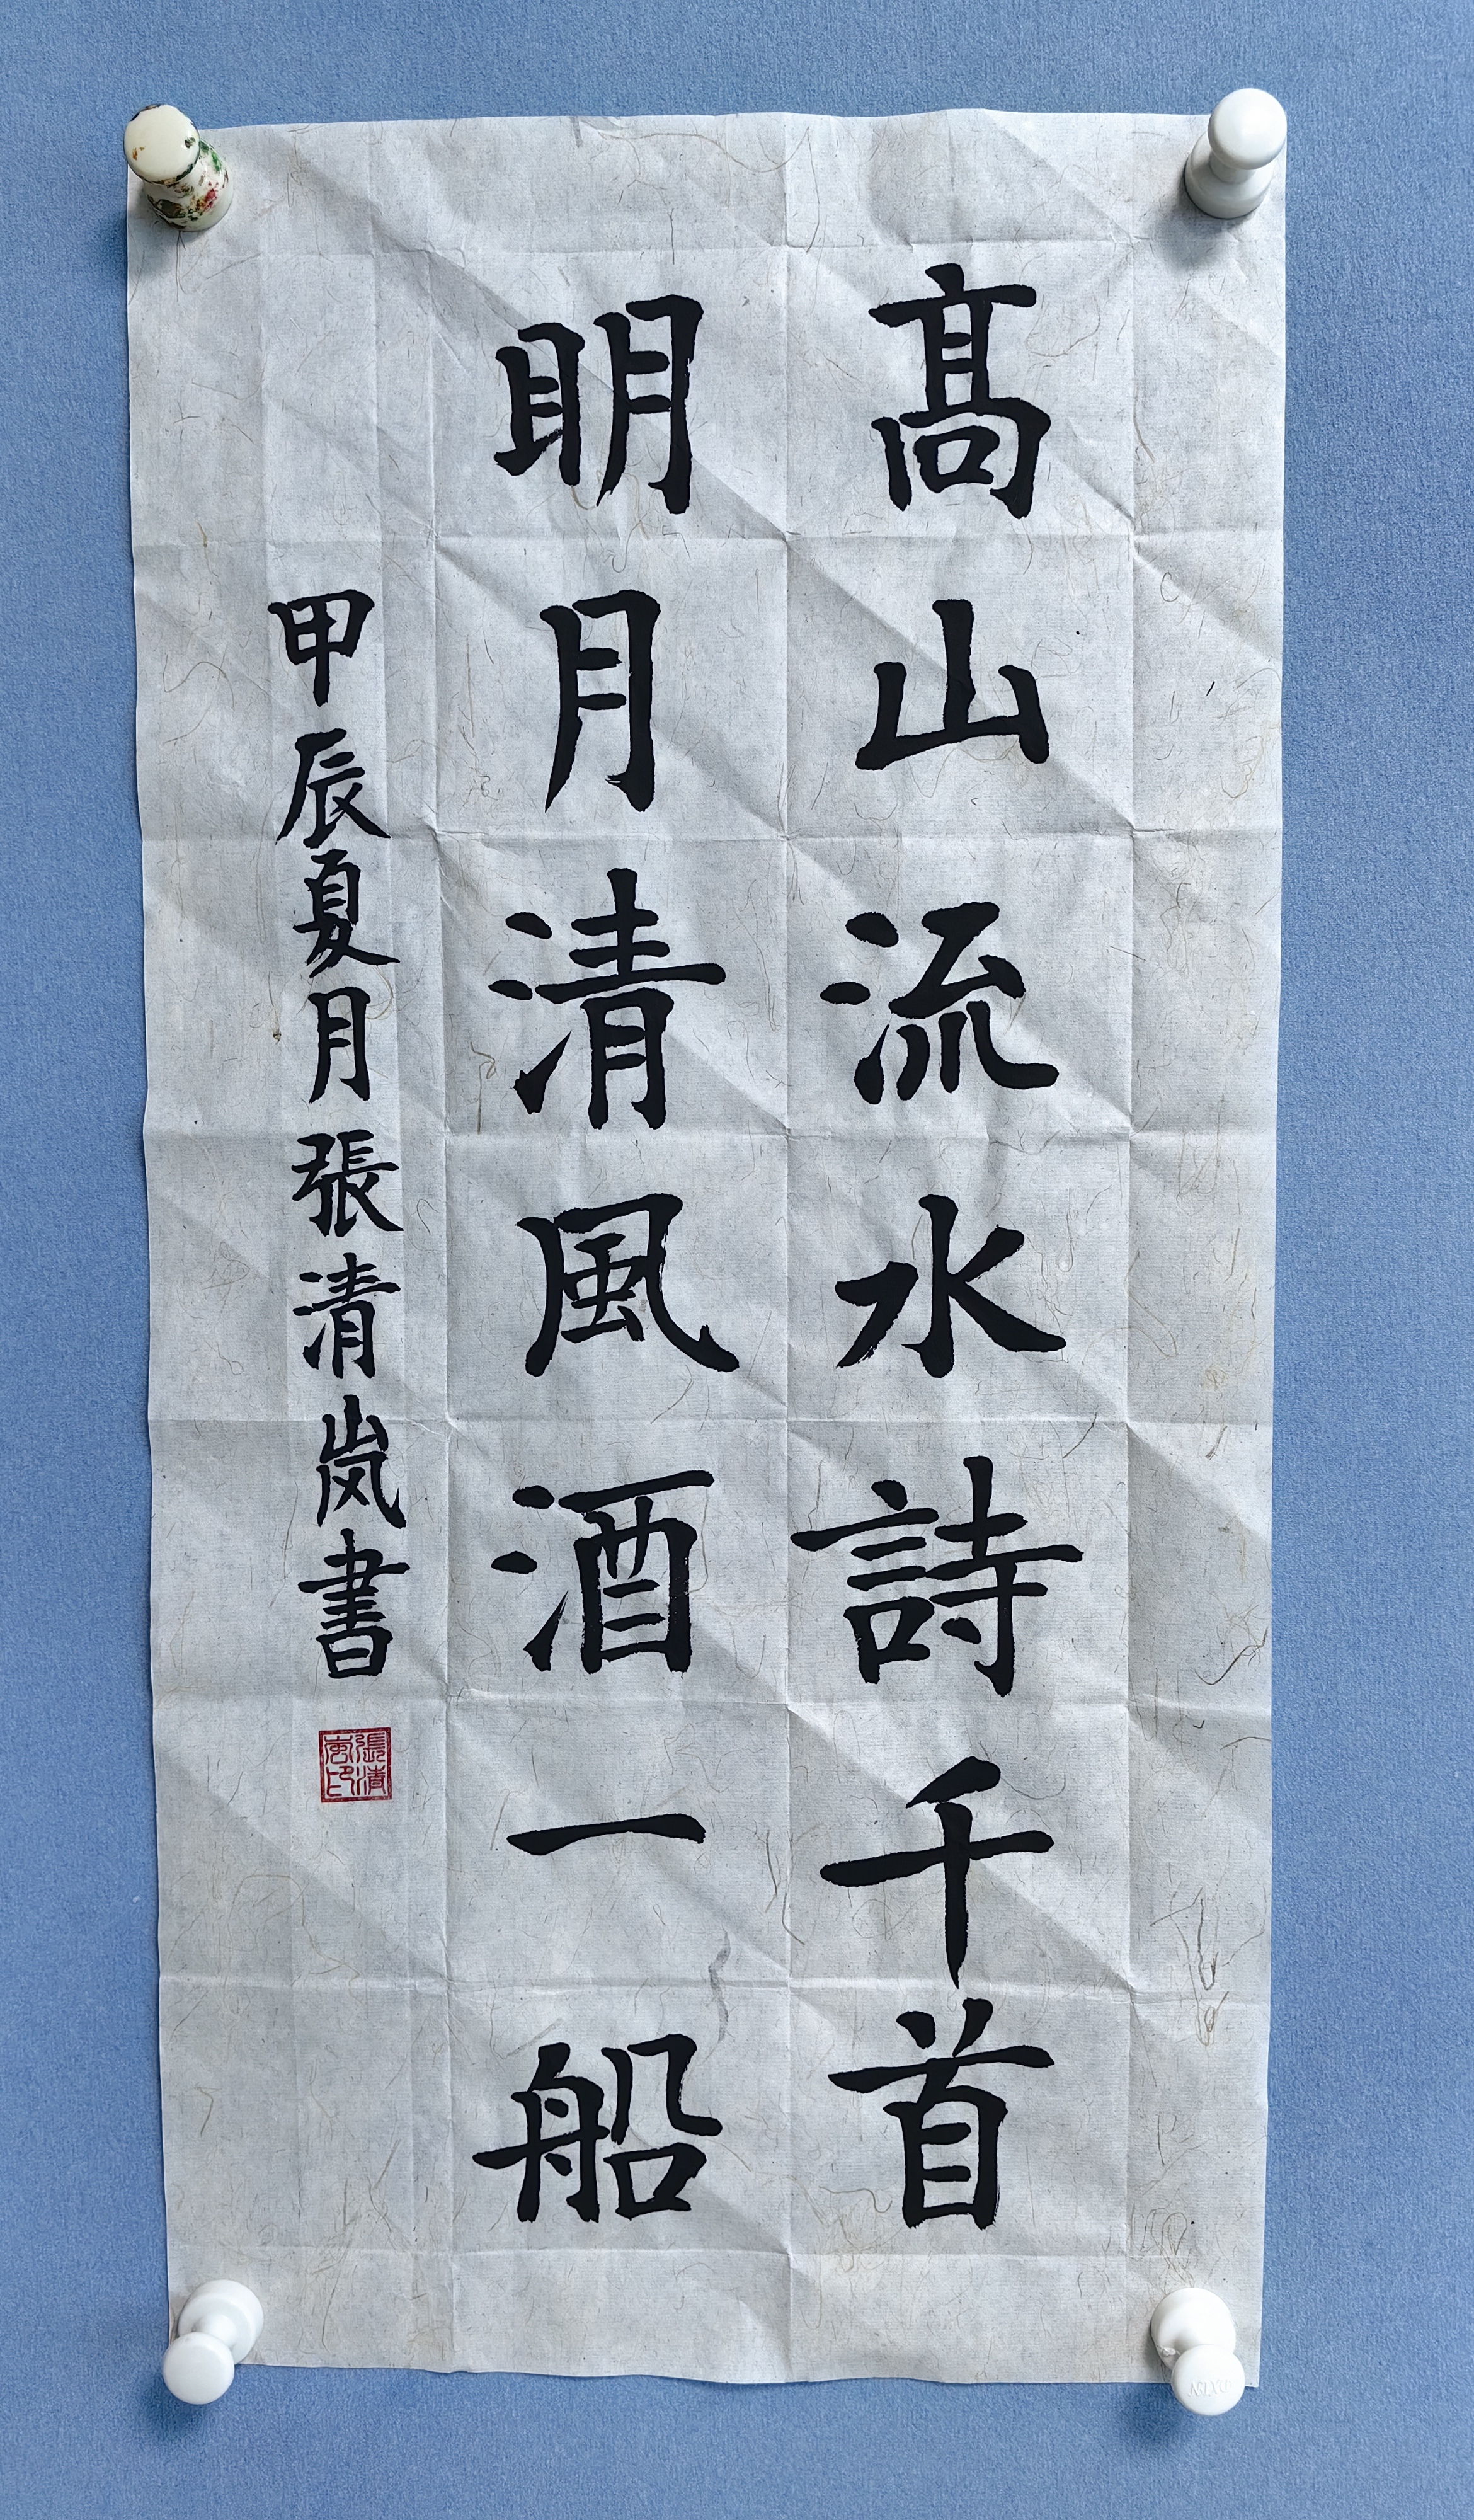 髙山流水詩千首
眀月清風酒一船
甲辰夏月張清岚書
張清嵐印